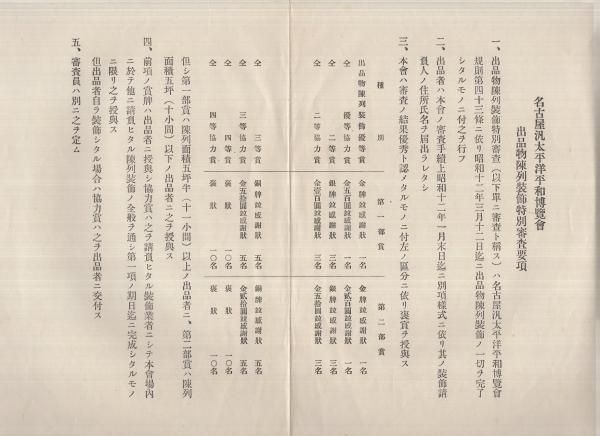 名古屋汎太平洋平和博覽會
出品物陳列裝飾特別審査要項
一、出品物陳列裝飾特別審査（以下單ニ審査ト稱ス）ハ名古屋汎太平洋平和博覽會
規則第四十三條ニ依リ昭和十二年三月十二日迄ニ出品物陳列裝飾ノ一切ヲ完了
シタルモノニ付之ヲ行フ
二、出品者ハ本會ノ審査手續上昭和十二年一月末日迄ニ別項樣式ニ依リ其ノ裝飾請
負人ノ住所氏名ヲ屆出ラレタシ
三、本會ハ審査ノ結果優秀ト認メタルモノニ付左ノ區分ニ依リ褒賞ヲ授與ス
種別 第一部賞 第二部賞
出品物陳列裝飾優等賞 金牌竝感謝狀 一名 金牌竝感謝狀 一名
仝 優等協力賞 金五百圓竝感謝狀 一名 金貳百圓竝感謝狀 一名
仝 二等賞 銀牌竝感謝狀 三名 銀牌竝感謝狀 三名
仝 二等協力賞 金壹百圓竝感謝狀 三名 金五十圓竝感謝狀 三名
仝 三等賞 銅牌竝感謝狀 五名 銅牌竝感謝狀 五名
仝 三等協力賞 金五拾圓竝感謝狀 五名 金貳拾圓竝感謝狀 五名
仝 四等賞 褒狀 一〇名 褒狀 一〇名
仝 四等協力賞 褒狀 一〇名 褒狀 一〇名
但シ第一部賞ハ陳列面積五坪半（十一小間）以上ノ出品者ニ、第二部賞ハ陳列
面積五坪（十小間）以下ノ出品者ニ之ヲ授與ス
四、前項ノ賞牌ハ出品者ニ授與シ協力賞ハ之ヲ請負ヒタル裝飾業者ニシテ本會場內
ニ於テ他ニ請負ヒタル陳列裝飾ノ全般ヲ通シ第一項ノ期日迄ニ完成シタルモノ
ニ限リ之ヲ授與ス
但出品者自ラ裝飾シタル場合ハ協力賞ハ之ヲ出品者ニ交付ス
五、審査員ハ別ニ之ヲ定ム